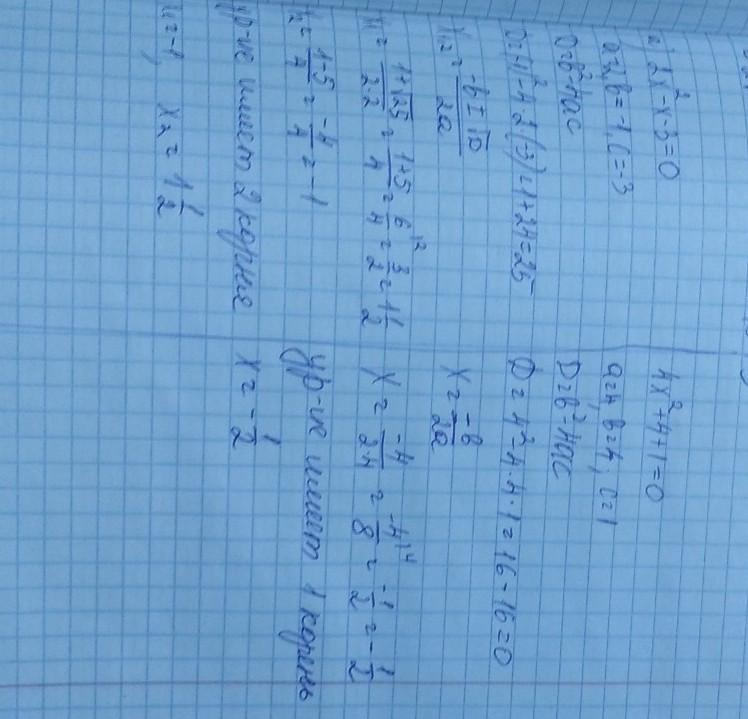 а) 2x²-x-3=0
a=2, b=-1, c=-3
D=b²-4ac
D=(-1)²-4·2·(-3)=1+24=25
x₁,₂ = (-b±√D)/2a
x₁ = (1+√25)/(2·2) = (1+5)/4 = 6/4 |2 = 3/2 = 1 1/2
x₂ = (1-5)/4 = -4/4 = -1
ур-ие имеет 2 корня
x₁=-1, x₂ = 1 1/2
4x²+4+1=0
a=4, b=4, c=1
D=b²-4ac
D=4²-4·4·1=16-16=0
x = -b/2a
x = -4/(2·4) = -4/8 |4 = -1/2 = -1/2
ур-ие имеет 1 корень
x = -1/2